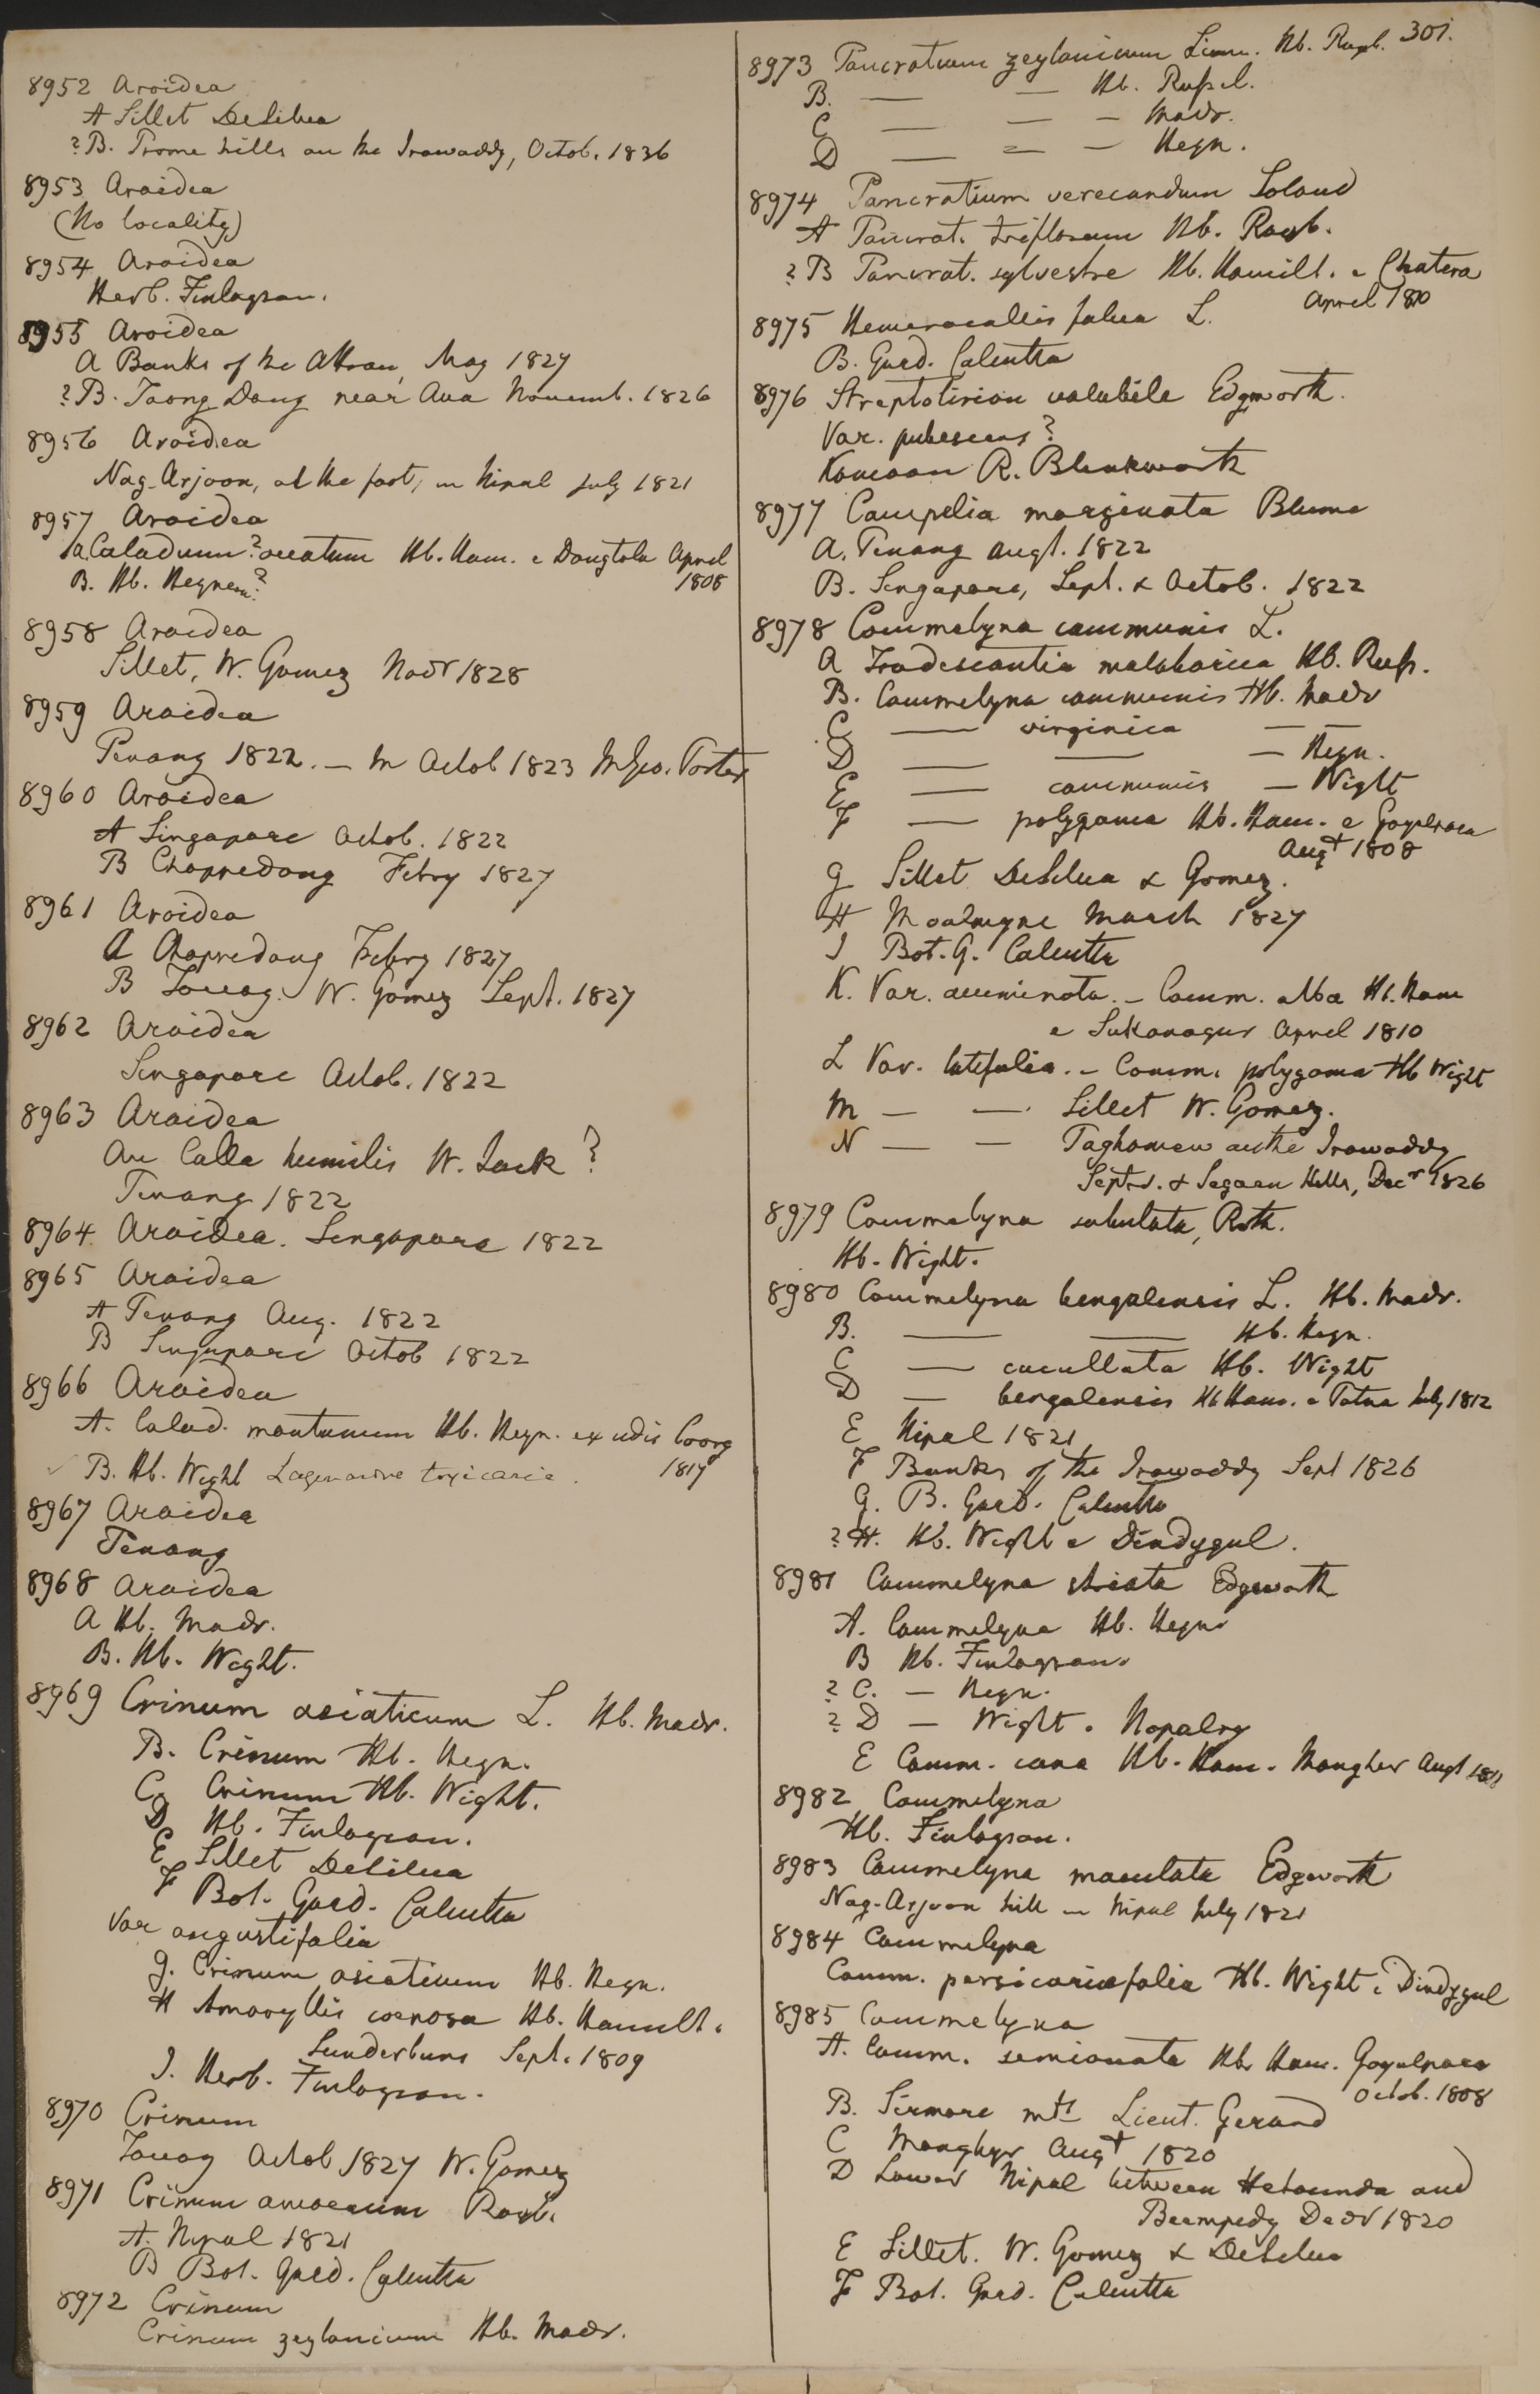 8952 Aroidea
A Sillet DeSilva
?B. Prome hills on the Irawaddy, Octob. 1826
8953 Aroidea
(No locality)
8954 Aroidea
Herb. Finlayson.
8955 Aroidea
A Banks of the Attran, May 1827
?B. Taong Dong near Ava Novemb. 1826
8956 Aroidea
Nag-Arjoon, at the foot, in Nipal July 1821
8957 Aroidea
A Caladium? ovatum Hb. Ham. e Dangtola April
1808
B. Hb. Heynean?
8958 Aroidea
Sillet, W. Gomez Novr 1828
8959 Aroidea
Penang 1822. — in Octob 1823 Geo. Porter
8960 Aroidea
A Singapore Octob. 1822
B Chappedong Febry 1827
8961 Aroidea
A Chappedong Febry 1827
B Tavoy. W. Gomez Sept. 1827
8962 Aroidea
Singapore Octob. 1822
8963 Aroidea
An Calla humilis W. Jack?
Penang 1822
8964 Aroidea. Singapore 1822
8965 Aroidea
A Penang Aug. 1822
B Singapore Octob 1822
8966 Aroidea
A. Calad. montanum Hb. Heyn. ex udis Coorg
1817
B. Hb. Wight Lagenandra toxicaria.
8967 Aroidea
Penang
8968 Aroidea
A Hb. Madr.
B. Hb. Wight.
8969 Crinum asiaticum L. Hb. Madr.
B. Crinum Hb. Heyn.
C Crinum Hb. Wight.
D Hb. Finlayson.
E Sillet DeSilva
F Bot. Gard. Calcutta
Var angustifolia
G. Crinum asiaticum Hb. Heyn.
H Amaryllis coenosa Hb. Hamilt.
Sunderbuns Sept. 1809
I. Herb. Finlayson.
8970 Crinum
Tavoy Octob 1827 W. Gomez
8971 Crinum amoenum Roxb.
A. Nipal 1821
B Bot. Gard. Calcutta
8972 Crinum
Crinum zeylanicum Hb. Madr.
301.
8973 Pancratium zeylanicum Linn. Hb. Roxb.
B. — — Hb. Russel.
C — — — Madr.
D — — — Heyn.
8974 Pancratium verecundum Soland
A Pancrat. triflorum Hb. Roxb.
?B Pancrat. sylvestre Hb. Hamilt. e Chatera
April 1810
8975 Hemerocallis fulva L.
B. Gard. Calcutta
8976 Streptolirion volubile Edgworth.
Var. pubescens?
Kamoon R. Blinkworth
8977 Campelia marginata Blume
A. Penang Augt. 1822
B. Singapore, Sept. & Octob. 1822
8978 Commelyna communis L.
A Tradescantia malabarica Hb. Russ.
B. Commelyna communis Hb. Madr
C — virginica — —
D — — — Heyn.
E — communis — Wight
F — polygama Hb. Ham. e Goyalpara
Augt 1808
G Sillet DeSilva & Gomez.
H Moalmyne March 1827
I Bot. G. Calcutta
K. Var. acuminata. – Comm. alba Hb. Ham
e Sukanagur April 1810
L Var. latifolia. – Comm. polygama Hb Wight
M — — Sillet W. Gomez.
N — — Taghomew on the Irawaddy
Septr. & Segaen Hills, Decr 1826
8979 Commelyna subulata, Roth.
Hb. Wight.
8980 Commelyna bengalensis L. Hb. Madr.
B. — — Hb. Heyn.
C — cucullata Hb. Wight
D — bengalensis Hb Ham. e Patna July 1812
E Nipal 1821
F Banks of the Irawaddy Sept 1826
G. B. Gard. Calcutta
?H. Hb. Wight e Dindygul.
8981 Commelyna striata Edgeworth
A. Commelyna Hb. Heyn.
B Hb. Finlayson.
?C. — Heyn.
?D — Wight. Nopalry
E Comm. cana Hb. Ham. Mongher Augt 1811
8982 Commelyna
Hb. Finlayson.
8983 Commelyna maculata Edgeworth
Nag-Arjoon hill in Nipal July 1821
8984 Commelyna
Comm. persicariaefolia Hb. Wight e Dindygul
8985 Commelyna
A. Comm. semiovata Hb Ham. Goyalpara
Octob. 1808
B. Sirmore mts Lieut. Gerard
C Monghyr Augt 1820
D Lower Nipal between Hetounda and
Beempedy Decr 1820
E Sillet. W. Gomez & DeSilva
F Bot. Gard. Calcutta